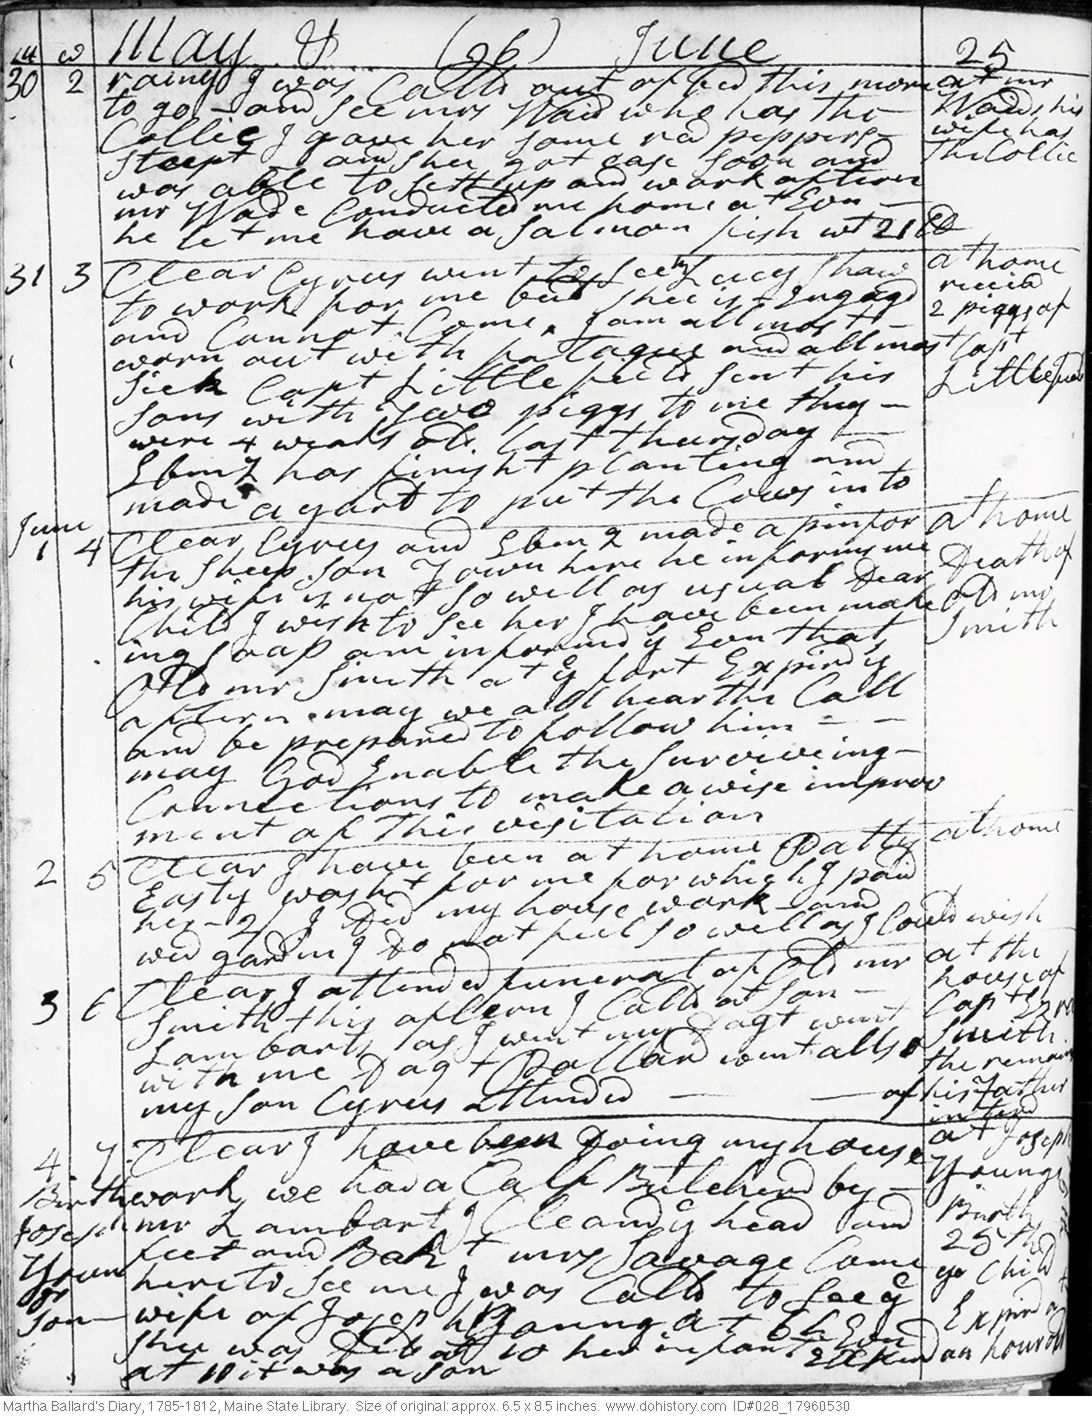 m w May & (96) June 25
30 2 rainy I was Calld out of bed this morn at mr
to go and see mrs Waid who has the Wades his
Collic I gave her some red peppers wife has
steept and shee got ease soon and The Collic
was able to sett up and work aftern
mr Wade Conducted me home at Evn
he let me have a Salmon fish wt 21 lb
31 3 Clear Cyrus went to see Lucy Shaw at home
to work for me but shee is Engagd receivd
and Cannot Come. I am all most 2 piggs of
worn out with fatague and all most Capt
Sick Capt Littlefield sent his Littlefield
sons with two piggs to me they
were 4 weaks old last Thursday
Ebm has finisht planting and
made a yard to put the Cows into
June
1 4 Clear Cyrus and Ebm made a pin for at home
the sheep. son Town here he informs me Death of
his wife is not so well as usual Dear old mr
Child I wish to see her I have been make Smith
ing soap am informd y Evn that
Old mr Smith at y fort Expird y
aftern. may we all hear the Call
and be prepared to follow him
may God Enable the surviveing
Connections to make a wise improv
ment of This visitation
2 5 Clear I have been at home Patty at home
Easty washt for me for which I paid
her 2/ I Did my house work and
wed gardin I do not feel so well as I Could wish
3 6 Clear I attended funeral of old mr at the
Smith this aftern I Calld at son house of
Lambarts as I went my Dagt went Capt
with me Dagt Pollard went allso Smith
my son Cyrus attended the remains
of his Father
4 7 Clear I have been Doing my house at Joseph
Birth work, we had a Calf Butcherd by Youngs
Joseph mr Lambart I Cleand y head and Birth
Youn feet and Bakt mrs Savage Came 25th
gs here to see me I was Calld to see y ye Child
son wife of Joseph Young at 6 h Evn Expird
shee was Delivd at 10 her infant Expird an hour old
at 11 it was a son
Martha Ballard's Diary, 1785-1812, Maine State Library. Size of original: approx. 6.5 x 8.5 inches. www.dohistory.com ID#028_17960530